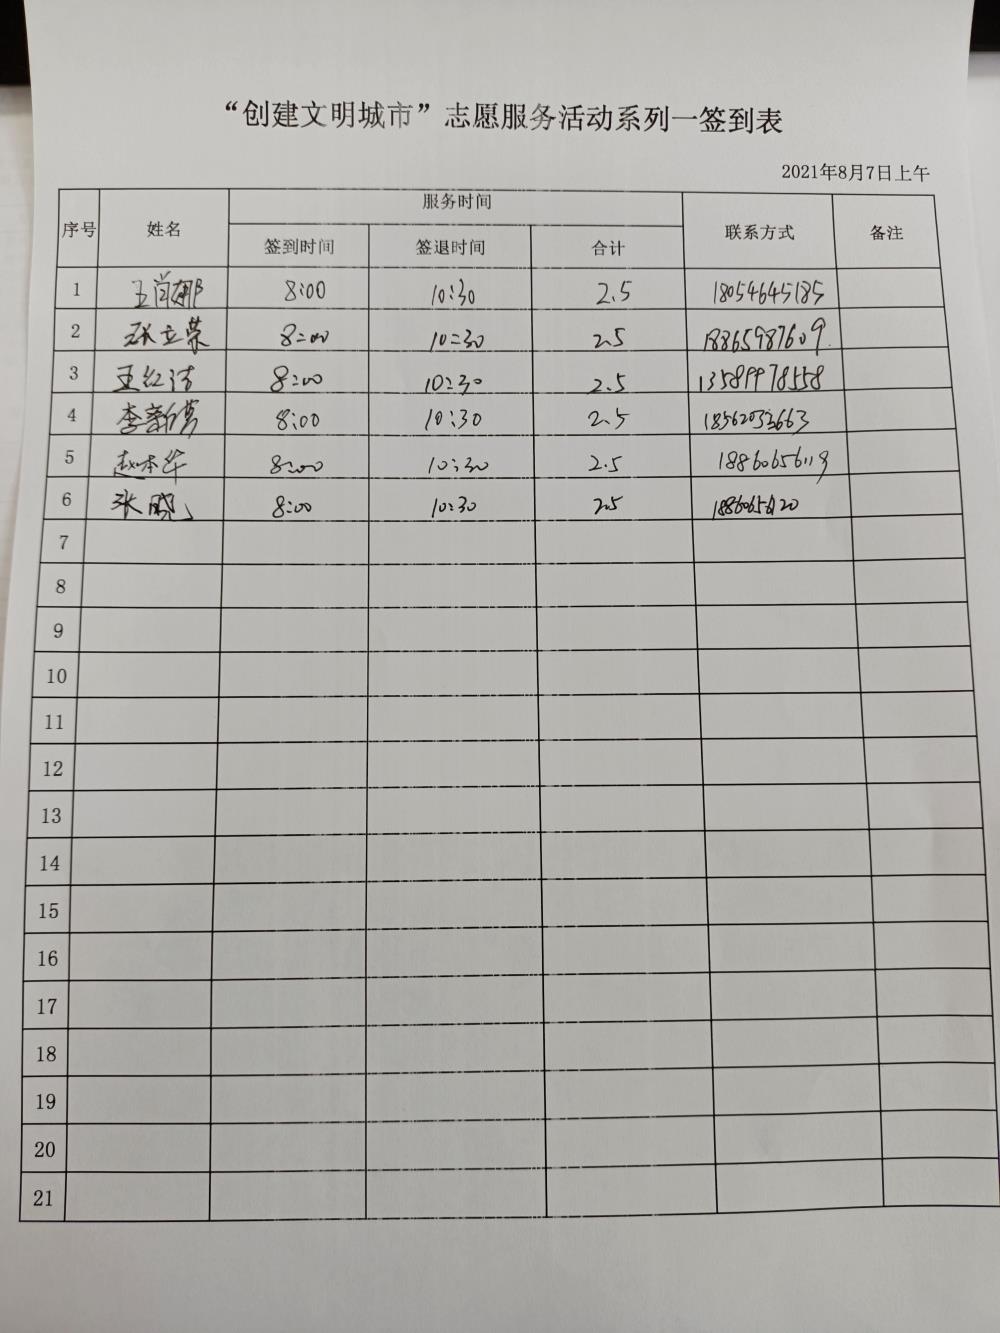 “创建文明城市”志愿服务活动系列一签到表
2021年8月7日上午
序号 姓名 服务时间 联系方式 备注
签到时间 签退时间 合计
1 王肖娜 8:00 10:30 2.5 18054645185
2 张立荣 8:00 10:30 2.5 18865987609
3 王红洁 8:00 10:30 2.5 13589978558
4 李新 8:00 10:30 2.5
5 赵本华 8:00 10:30 2.5 18860656119
6 张晓 8:00 10:30 2.5
7
8
9
10
11
12
13
14
15
16
17
18
19
20
21